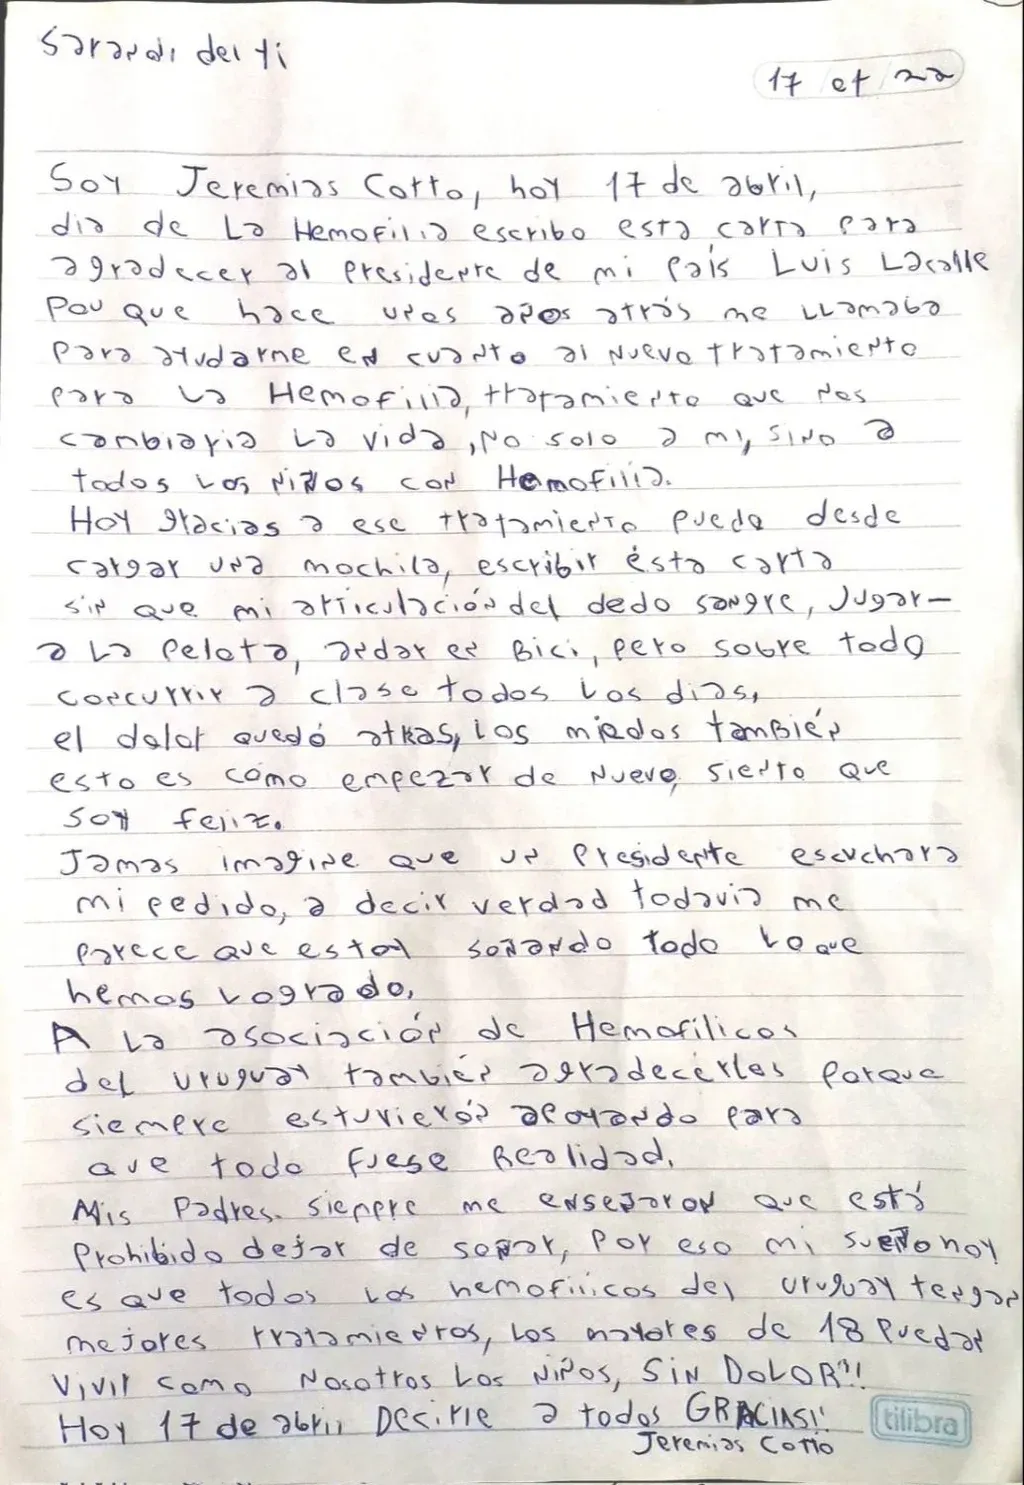 Sarandi del yi
17 et 22
Soy Jeremias Cotto, hoy 17 de abril,
dia de La Hemofilia escribo esta carta para
agradecer al Presidente de mi País Luis Lacalle
Por que hace unos años atrás me LLamaba
Para ayudarme en cuanto al Nuevo tratamiento
para La Hemofilia, tratamiento que nos
cambiaria La vida, No solo a mi, sino a
todos Los niños con Hemofilia.
Hoy gracias a ese tratamiento puedo desde
cargar una mochila, escribir ésta carta
sin que mi articulación del dedo sangre, Jugar-
a La Pelota, andar en Bici, pero sobre todo
concurrir a clase todos Los dias,
el dolor quedó atras, Los miedos también
esto es como empezar de Nuevo, siento que
soy feliz.
Jamas imagine que un Presidente escuchara
mi pedido, a decir verdad todavia me
parece que estoy soñando todo Lo que
hemos Logrado,
A La asociación de Hemofilicos
del uruguay también agradecérles porque
siempre estuvierón apoyando para
que todo fuese Realidad.
Mis Padres siempre me enseñaron que está
Prohibido dejar de soñar, Por eso mi sueño hoy
es que todos Los hemofilicos del uruguay tengan
mejores tratamientos, Los mayores de 18 Puedan
Vivir como Nosotros Los Niños, SIN DOLOR!!
Hoy 17 de abril Decirle a todos GRACIAS!!
Jeremias Cotto
tilibra